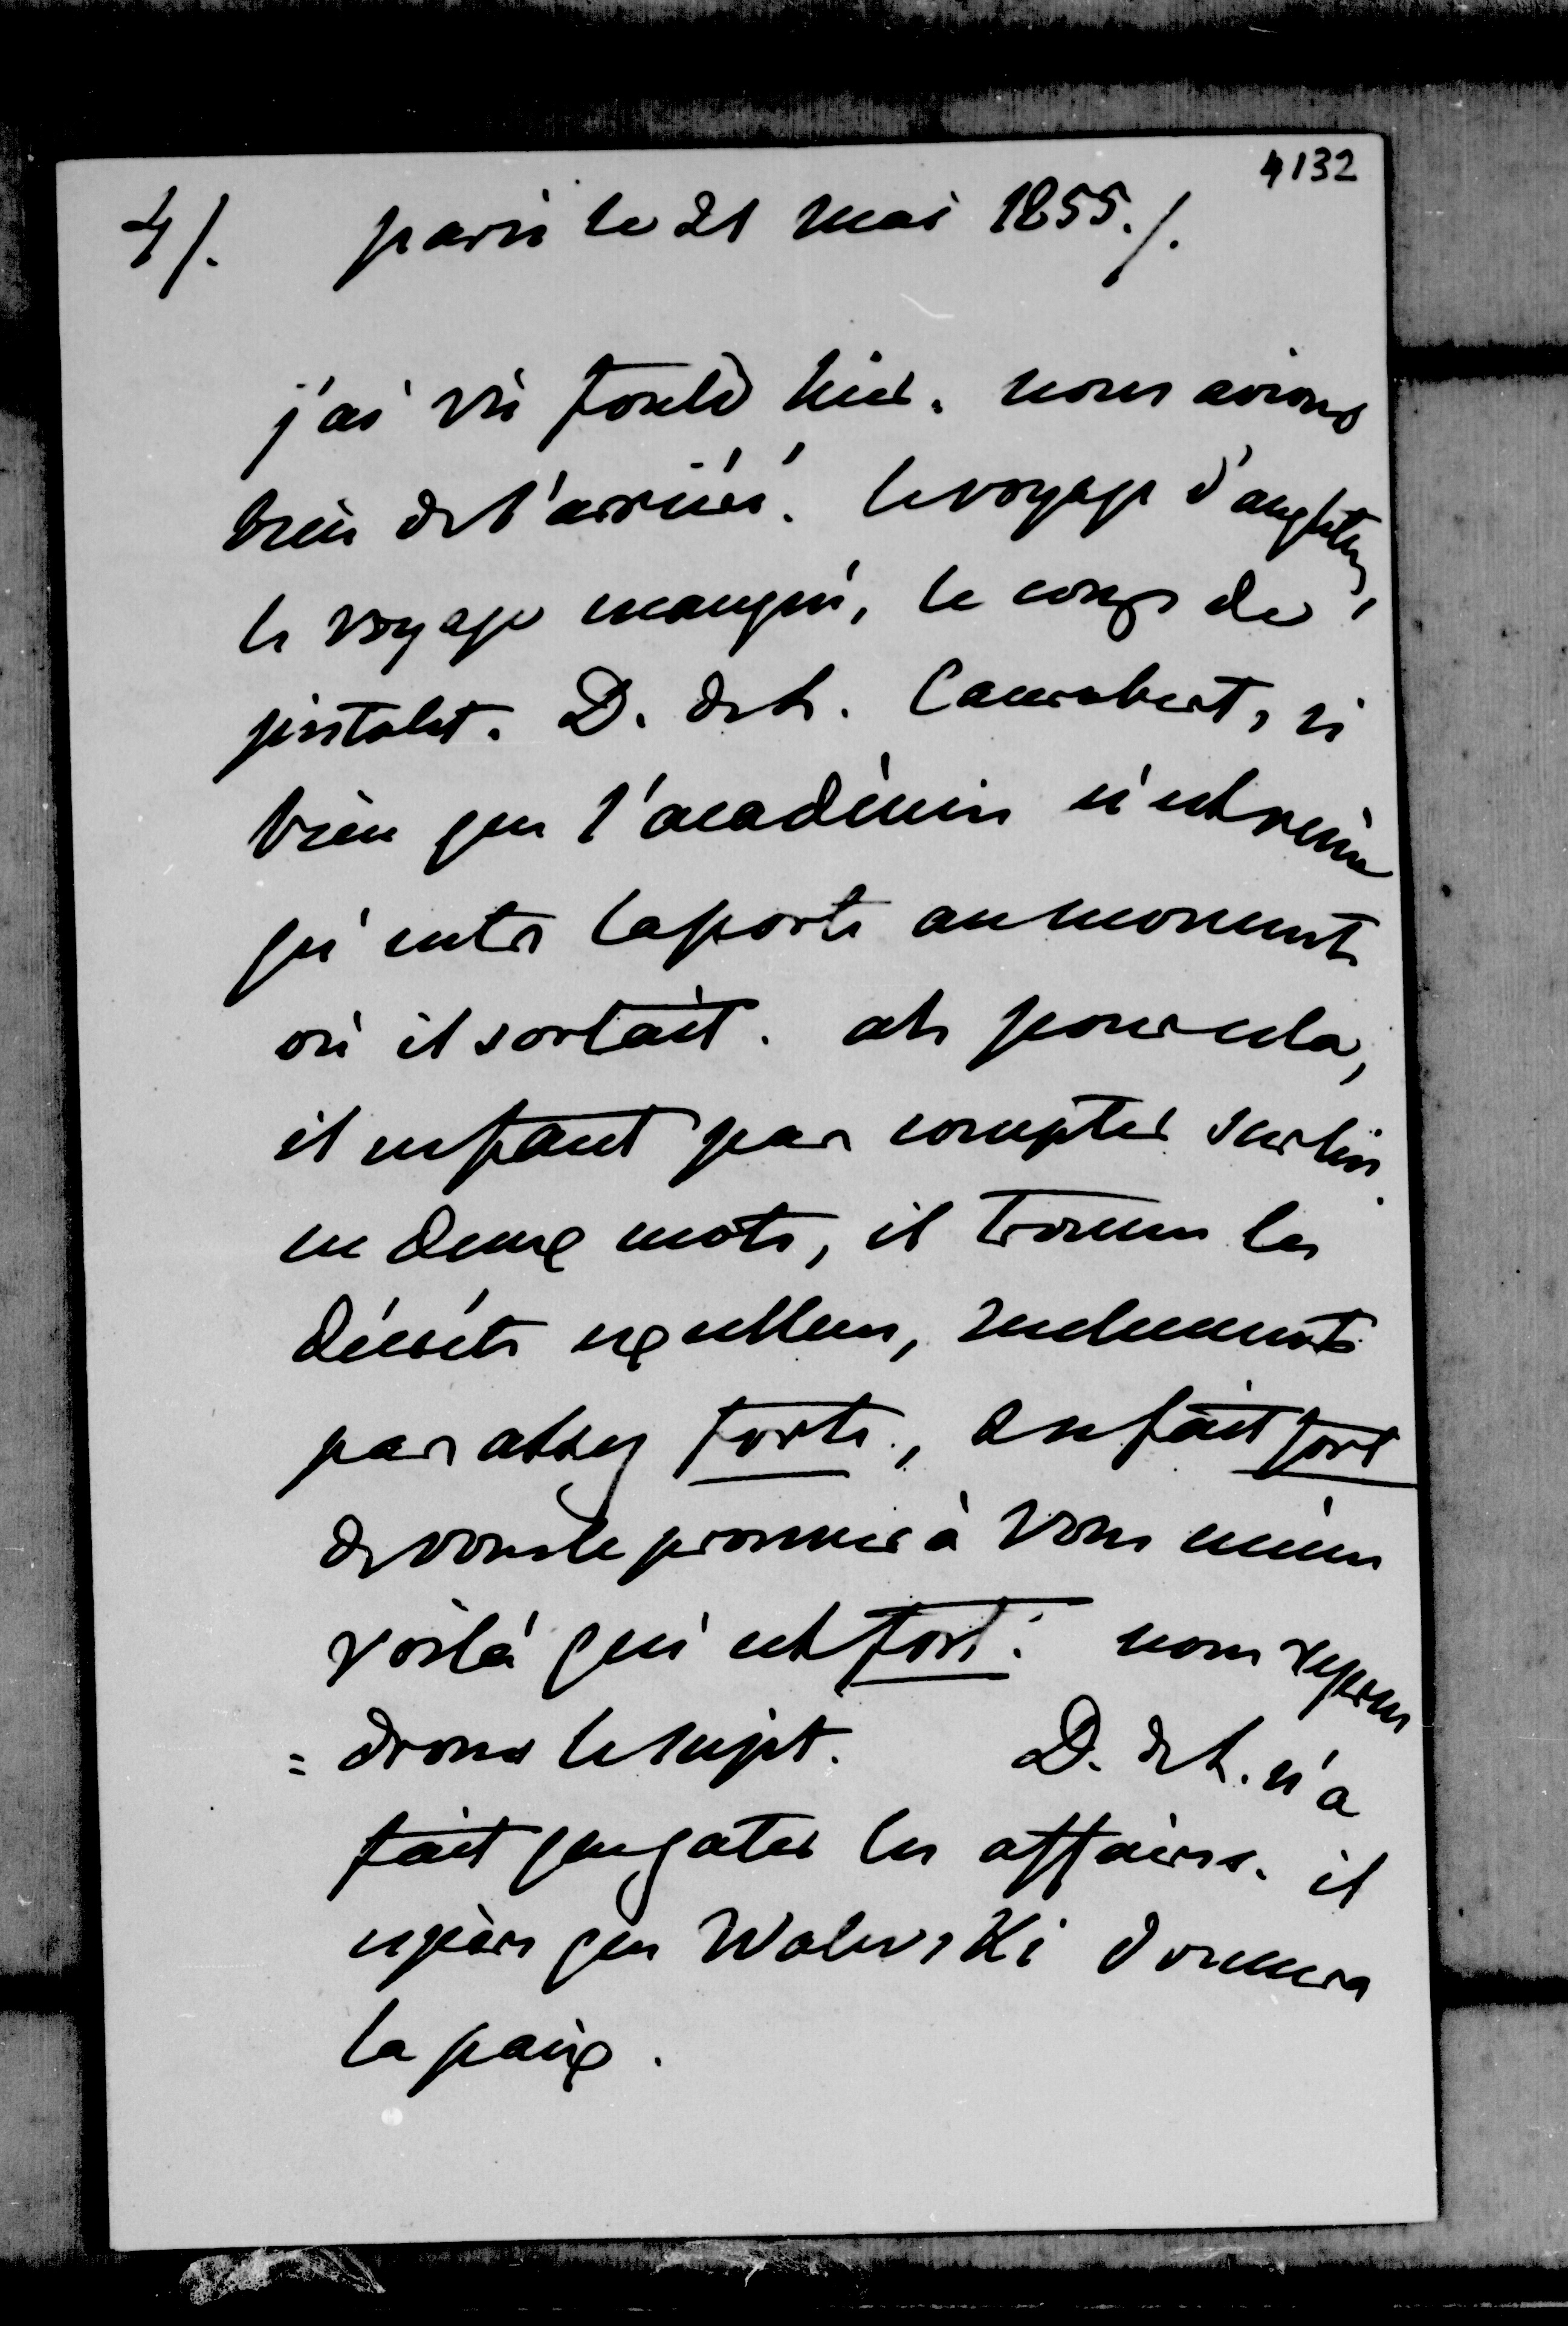 4132
4/. paris le 21 mai 1855./.
j'ai vu fould hier. nous avions
bien de l'arriéré. le voyage d'angleterre,
le voyage manqué, le coup de
pistolet. D. de L. Canrobert, si
bien que l'académie n'est venue
qu'entre la porte au moment
où il sortait. ah pour cela,
il ne faut pas compter sur lui.
en deux mots, il trouve les
décrets excellens, seulement
pas assez forts, au fait fort
de vous le prouver à vous même
voilà qui est fort. nous repren
= drons le sujet. D. de L. n'a
fait que gater les affaires. il
espère que Walewski donnera
la paix.